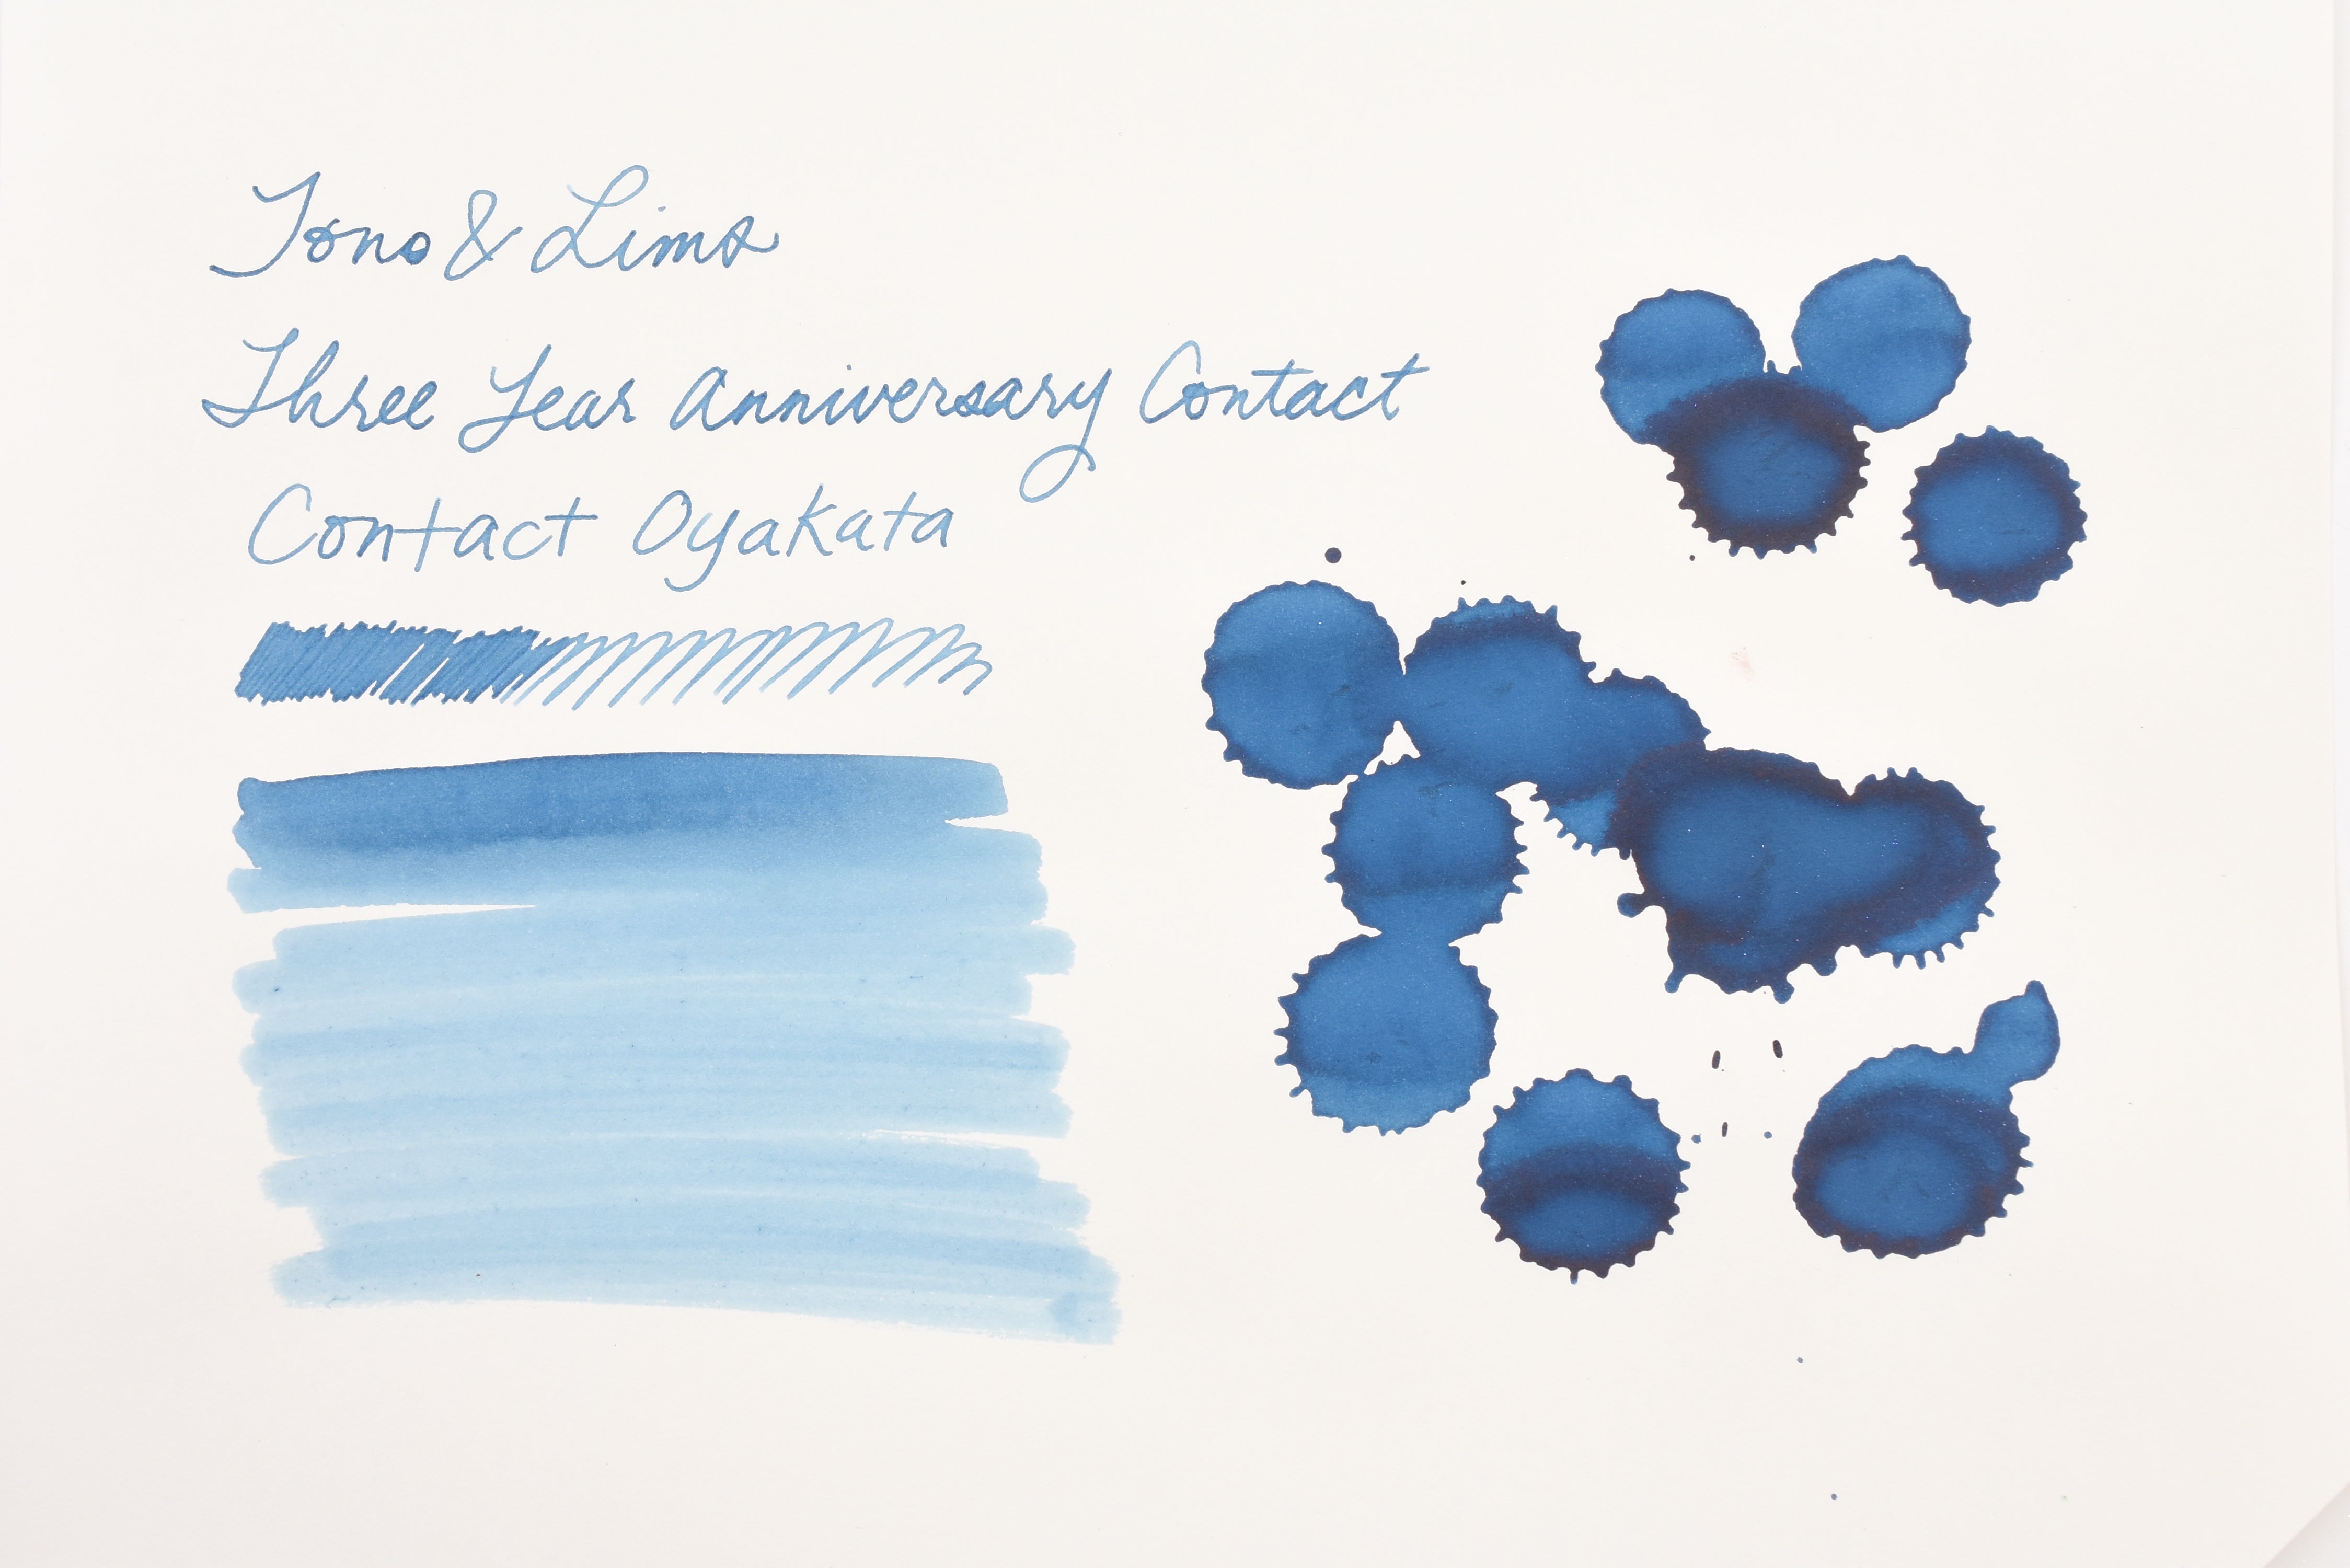 Tono & Lims
Three Year Anniversary Contact
Contact Oyakata